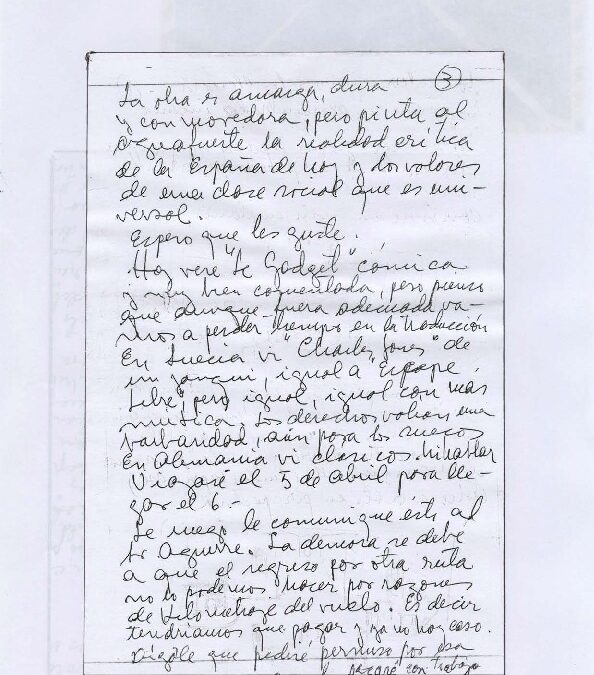 3
La obra es amarga, dura
y conmovedora, pero pinta al
aguafuerte la realidad crítica
de la España de hoy y los valores
de una clase social que es uni-
versal.
Espero que les guste.
Hoy veré "Le Gadget" cómica
y muy bien comentada, pero pienso
que aunque fuera adecuada va-
mos a perder tiempo en la traducción
En Suecia vi "Charley Jones" de
un yanqui, igual a Escape
Libre, pero igual, igual con más
música. Los derechos valían una
barbaridad, aún para los suecos
En Alemania vi clásicos. Ni hablar
Viajaré el 5 de abril para lle-
gar el 6.-
Le ruego le comunique ésto al
Sr Aguirre. La demora se debe
a que el regreso por otra ruta
no lo podemos hacer por razones
de kilometraje del vuelo. Es decir
tendríamos que pagar y ya no hay caso.
Dígale que pediré permiso por esa
pagaré con trabajo